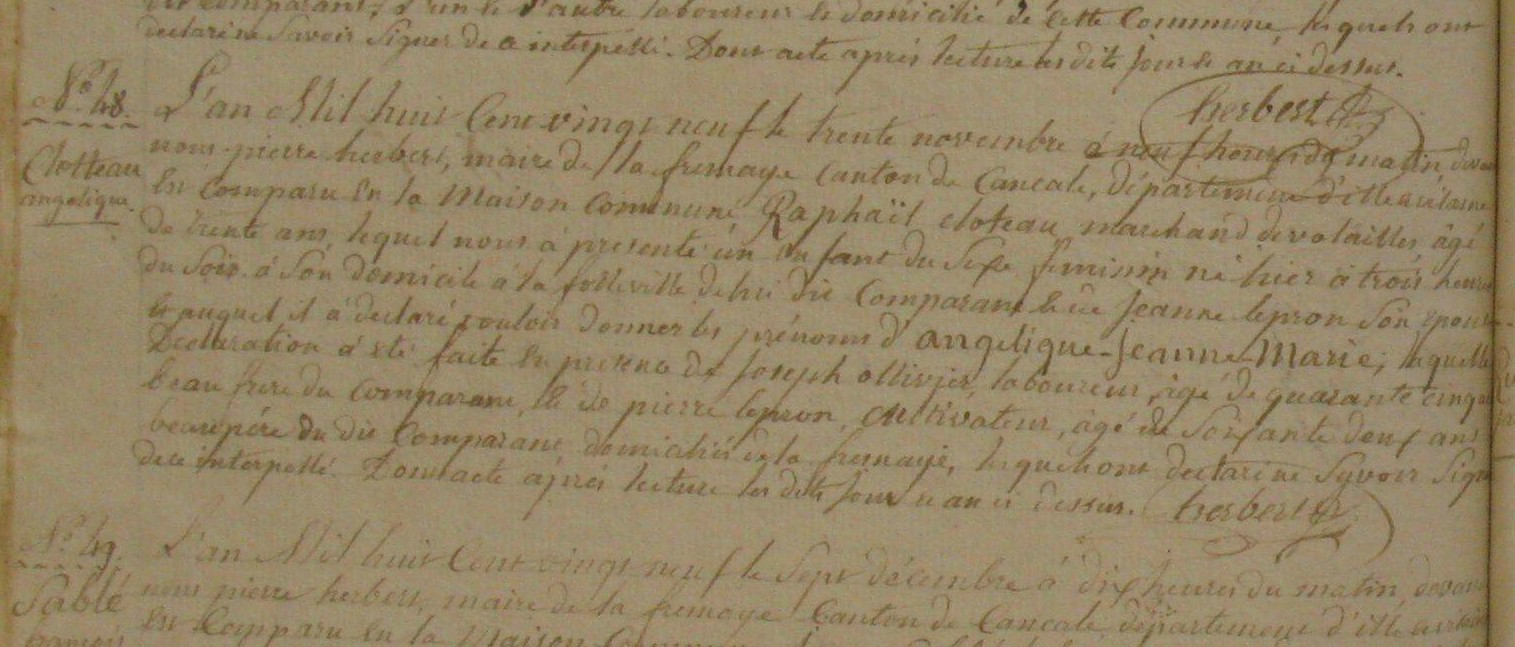 dit comparant, l'un et l'autre laboureur et domicilié de cette Commune lesquels ont
declaré ne Savoir Signer de ce interpellé. Dont acte après lecture les dits jour et an ci dessus.
herbert
N.o 48.
Clotteau
angelique.
L'an Mil huit Cent vingt neuf le trente novembre à neuf heures du matin devant
nous pierre herbert, maire de la fremaye Canton de Cancale, Département d'ille et vilaine
En Comparu En la Maison Commune Raphaïl cloteau marchand de volailles âgé
de trente ans, lequel nous à presenté un Enfant du Sexe feminin né hier à trois heures
du Soir à Son Domicile à la folleville de lui dit Comparant et de Jeanne lepron Son epouse
et auquel il à declaré vouloir donner les prénoms d'angelique-Jeanne-Marie; laquelle
Declaration à été faite En presence de Joseph ollivier, laboureur, âgé de quarante cinq ans
beau frere du Comparant, et de pierre lepron, cultivateur, âgé de Soixante deux ans
beau pére du dit Comparant domiciliés de la fremaye, lesquels ont declaré ne Savoir Signer
de ce interpellé. Dont acte après lecture les dits jour et an ci dessus. herbert
N.o 49.
Sablé
françois
L'an Mil huit Cent vingt neuf le Sept décembre à dix heures du matin devant
nous pierre herbert, maire de la fremaye Canton de Cancale, département d'ille et vilaine
En Comparu En la Maison Commune